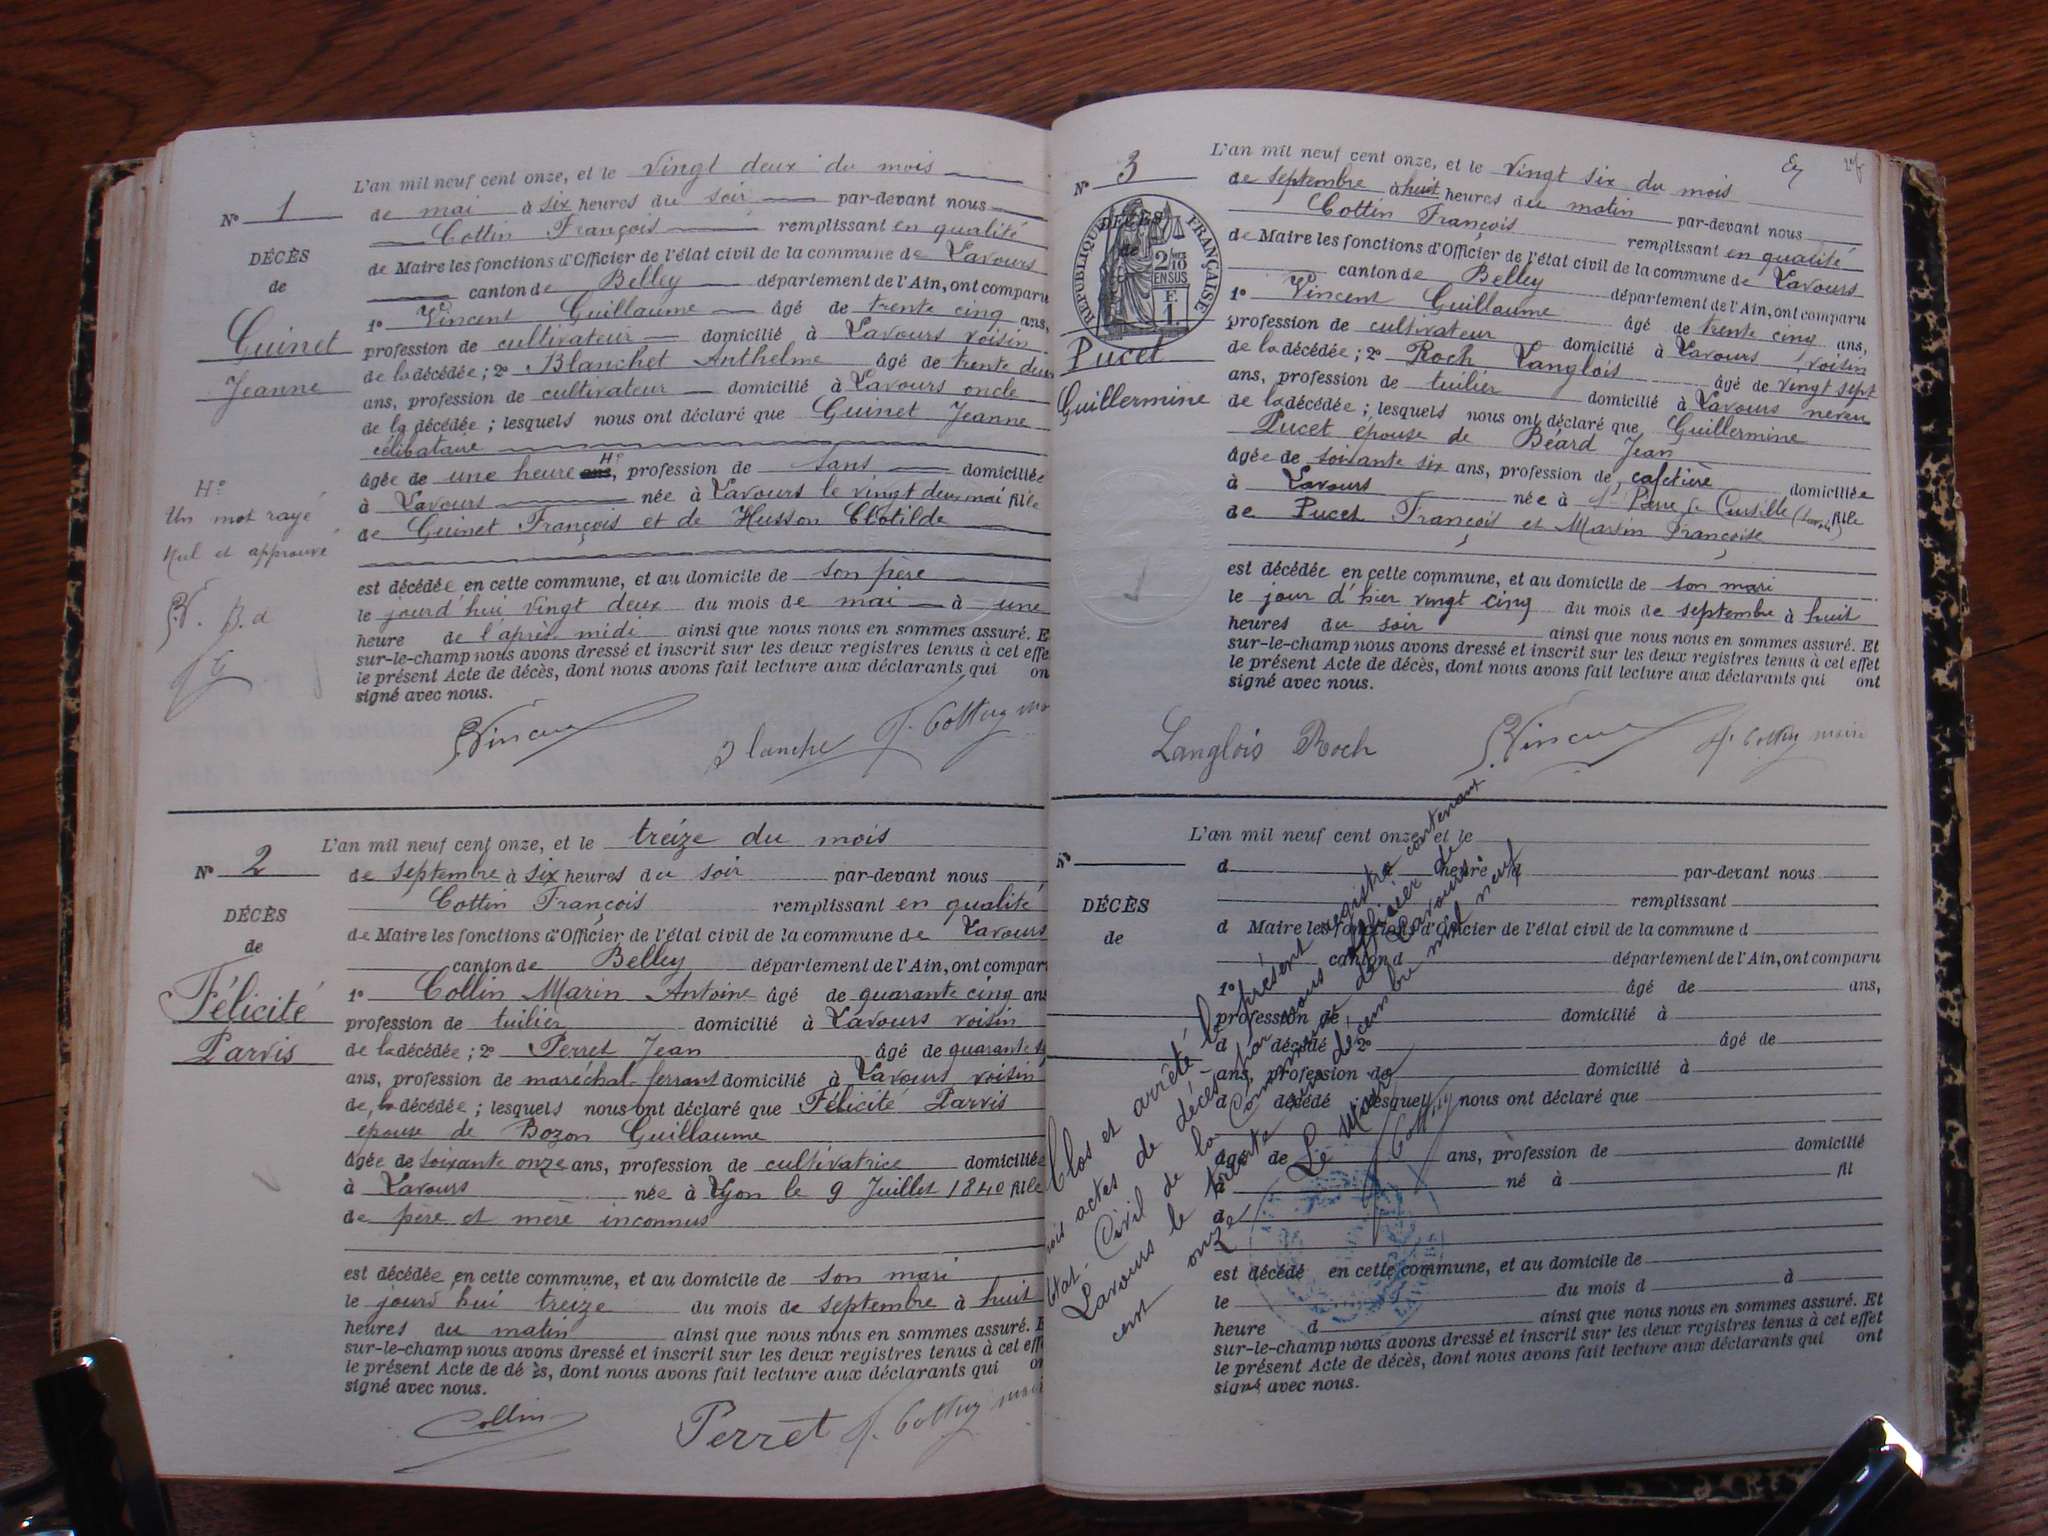 N° 1
DÉCÈS
de
Guinet
Jeanne
L'an mil neuf cent onze, et le vingt deux du mois
de mai à six heures du soir par-devant nous
Cottin François remplissant en qualité
de Maire les fonctions d'Officier de l'état civil de la commune de Lavours
canton de Belley département de l'Ain, ont comparu
1° Vincent Guillaume âgé de trente cinq ans,
profession de cultivateur domicilié à Lavours voisin
de la décédée; 2° Blanchet Anthelme âgé de trente deux
ans, profession de cultivateur domicilié à Lavours oncle
de la décédée; lesquels nous ont déclaré que Guinet Jeanne
célibataire
âgée de une heure ans, profession de sans domiciliée
à Lavours née à Lavours le vingt deux mai fille
de Guinet François et de Husson Clotilde
est décédée en cette commune, et au domicile de son père
le jourd'hui vingt deux du mois de mai à une
heure de l'après midi ainsi que nous nous en sommes assuré. E
sur-le-champ nous avons dressé et inscrit sur les deux registres tenus à cet effe
le présent Acte de décès, dont nous avons fait lecture aux déclarants qui on
signé avec nous.
Un mot rayé
Nul et approuvé
G. V. B. a
Vincent Blanche F. Cottin maire
N° 2
DÉCÈS
de
Félicité
Parvis
L'an mil neuf cent onze, et le treize du mois
de septembre à six heures du soir par-devant nous
Cottin François remplissant en qualité
de Maire les fonctions d'Officier de l'état civil de la commune de Lavours
canton de Belley département de l'Ain, ont compar
1° Collin Marin Antoine âgé de quarante cinq ans
profession de tuilier domicilié à Lavours voisin
de la décédée; 2° Perret Jean âgé de quarante
ans, profession de maréchal-ferrant domicilié à Lavours voisin
de la décédée; lesquels nous ont déclaré que Félicité Parvis
epouse de Bozon Guillaume
âgée de soixante onze ans, profession de cultivatrice domiciliée
à Lavours née à Lyon le 9 Juillet 1840 fille
de père et mere inconnus
est décédée en cette commune, et au domicile de son mari
le jourd'hui treize du mois de septembre à huit
heures du matin ainsi que nous nous en sommes assuré. E
sur-le-champ nous avons dressé et inscrit sur les deux registres tenus à cet effe
le présent Acte de décès, dont nous avons fait lecture aux déclarants qui on
signé avec nous.
Collin Perret F. Cottin maire
N° 3
DÉCÈS
de
RÉPUBLIQUE FRANÇAISE
2/10 EN SUS
Pucet
Guillermine
L'an mil neuf cent onze, et le vingt six du mois
de septembre à huit heures du matin par-devant nous
Cottin François remplissant en qualité
de Maire les fonctions d'Officier de l'état civil de la commune de Lavours
canton de Belley département de l'Ain, ont comparu
1° Vincent Guillaume âgé de trente cinq ans,
profession de cultivateur domicilié à Lavours voisin
de la décédée; 2° Roch Langlois âgé de vingt sept
ans, profession de tuilier domicilié à Lavours neveu
de la décédée; lesquels nous ont déclaré que Guillermine
Pucet epouse de Béard Jean
âgée de soixante six ans, profession de cafetière domiciliée
à Lavours née à St Pierre de Curtille (Savoie) fille
de Pucet François et Martin Françoise
est décédée en cette commune, et au domicile de son mari
le jour d'hier vingt cinq du mois de septembre à huit
heures du soir ainsi que nous nous en sommes assuré. Et
sur-le-champ nous avons dressé et inscrit sur les deux registres tenus à cet effet
le présent Acte de décès, dont nous avons fait lecture aux déclarants qui ont
signé avec nous.
Langlois Roch Vincent F. Cottin maire
N°
DÉCÈS
de
L'an mil neuf cent onze, et le
d heure d par-devant nous
remplissant
d Maire les fonctions d'Officier de l'état civil de la commune d
canton d département de l'Ain, ont comparu
1° âgé de ans,
profession de domicilié à
d décédé 2° âgé de
ans, profession de domicilié à
d décédé lesquels nous ont déclaré que
âgé de ans, profession de domicilié
à né à fil
d
est décédé en cette commune, et au domicile de
le du mois d à
heure d ainsi que nous nous en sommes assuré. Et
sur-le-champ nous avons dressé et inscrit sur les deux registres tenus à cet effet
le présent Acte de décès, dont nous avons fait lecture aux déclarants qui ont
signé avec nous.
Clos et arrêté le présent registre contenant
trois actes de décès par nous officier de
l'état-Civil de la Commune de Lavours
Lavours le trente un décembre mil neuf
cent onze
Le Maire
F. Cottin